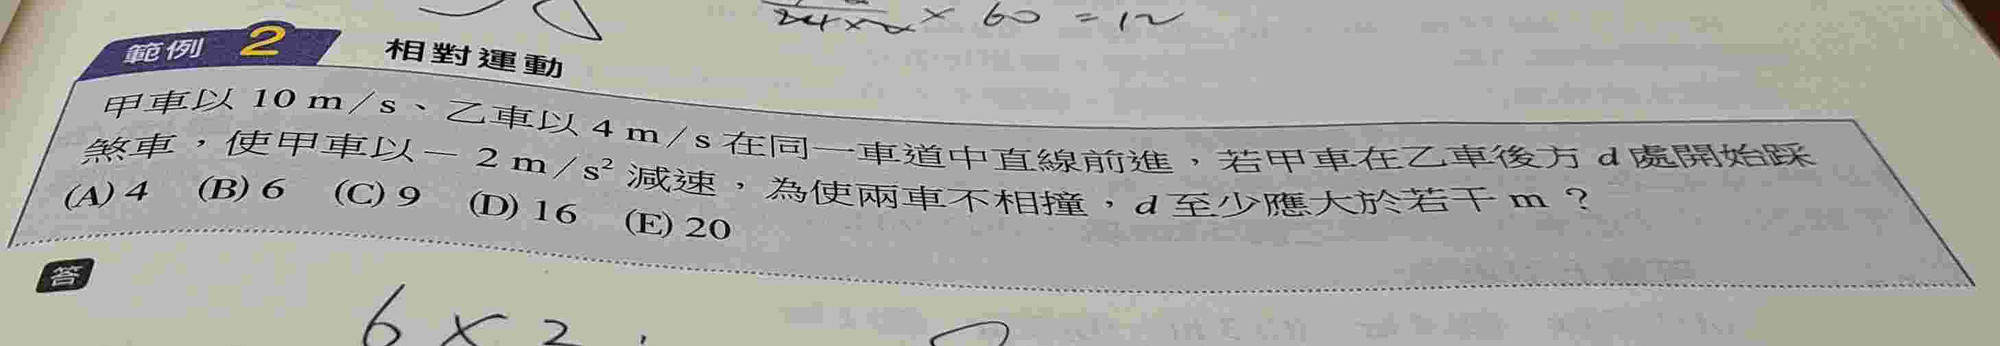 24×2 × 60 = 12
範例 2 相對運動
甲車以 10 m/s、乙車以 4 m/s 在同一車道中直線前進，若甲車在乙車後方 d 處開始踩
煞車，使甲車以－2 m/s² 減速，為使兩車不相撞，d 至少應大於若干 m？
(A) 4 (B) 6 (C) 9 (D) 16 (E) 20
答
6 × 2